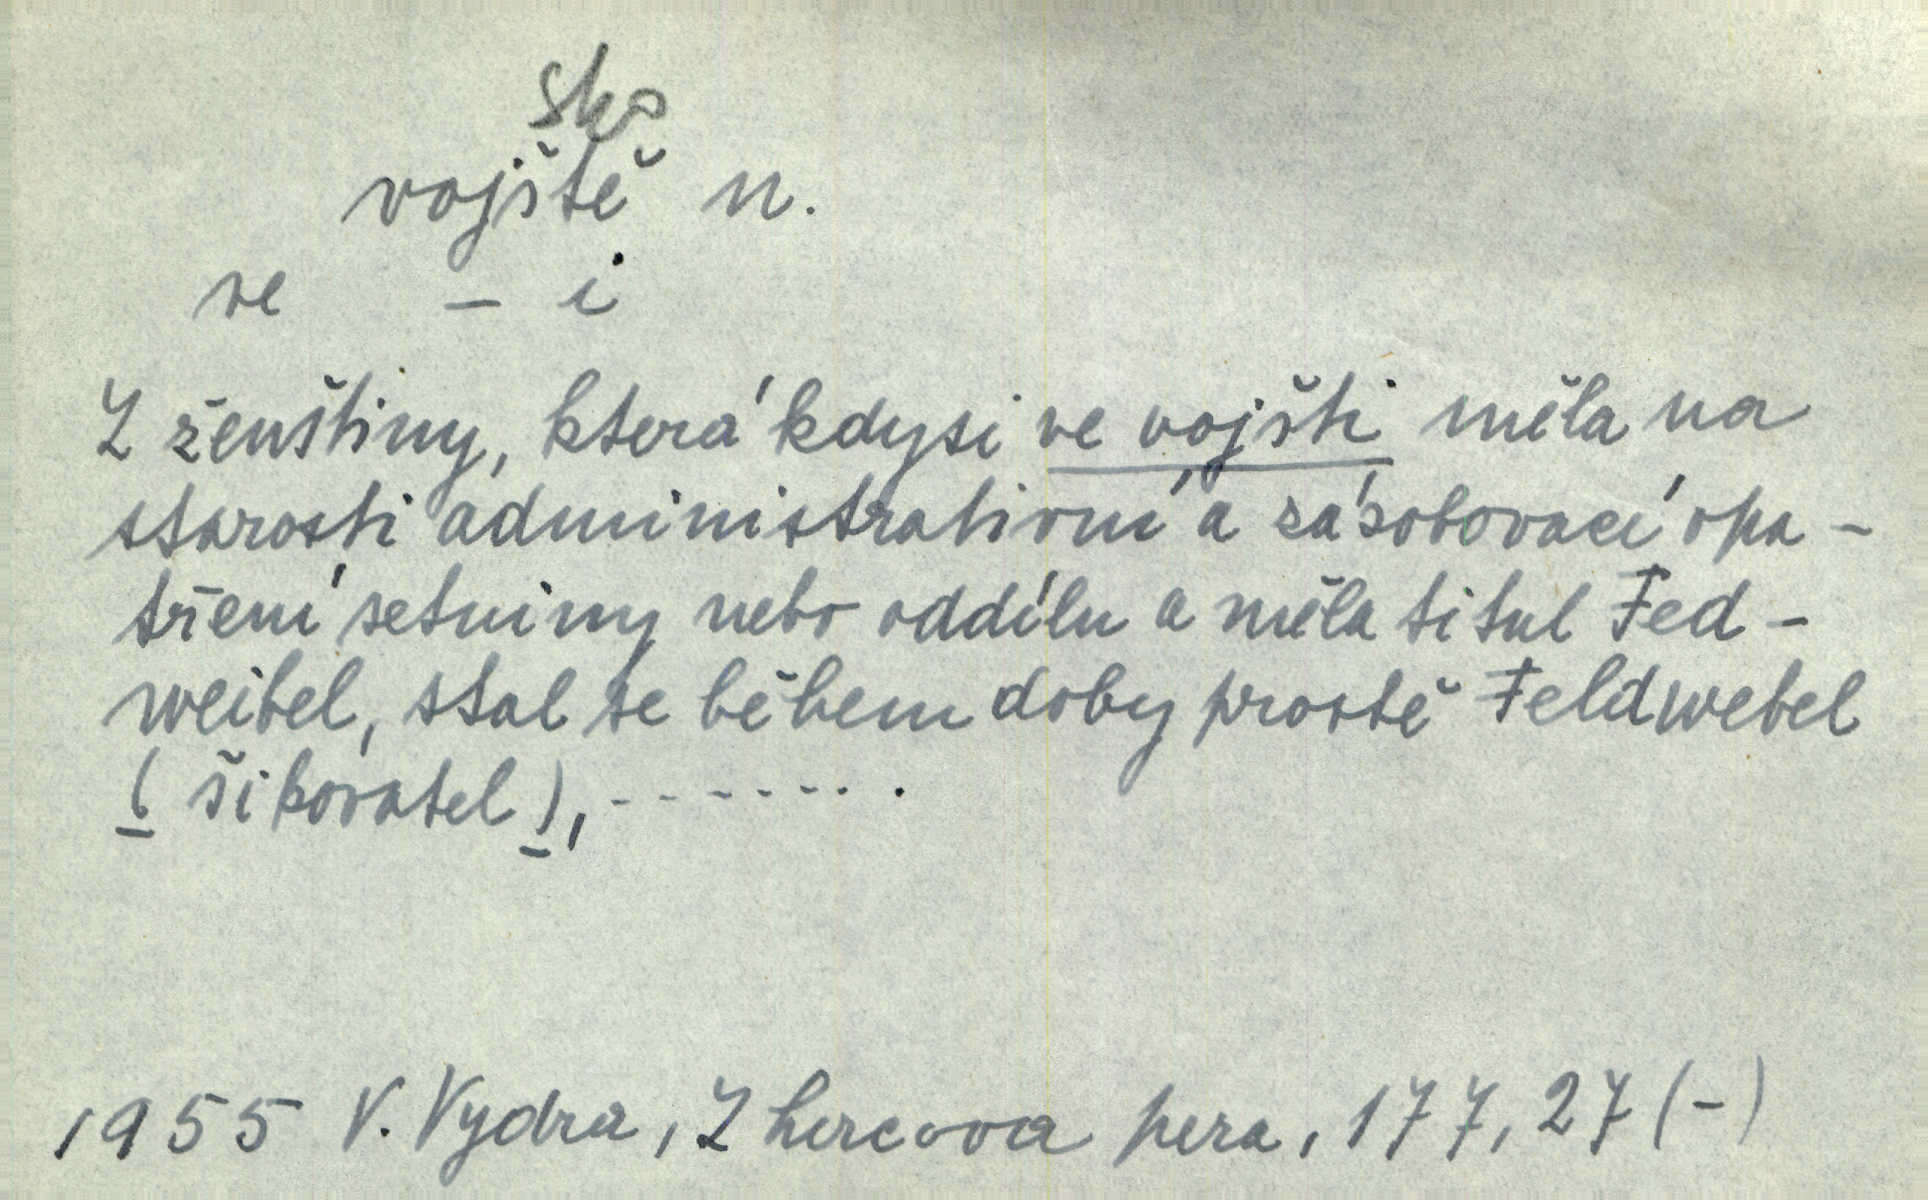 sko
vojště n.
ve – i
Z ženštiny, která kdysi ve vojšti měla na
starosti administrativní a zásobovací opa-
tření setniny nebo oddílu a měla titul Fed-
weibel, stal se během doby prostě Feldwebel
(šikovatel), - - - - - - - .
1955 V. Vydra, Z hercova pera, 177, 27 (-)